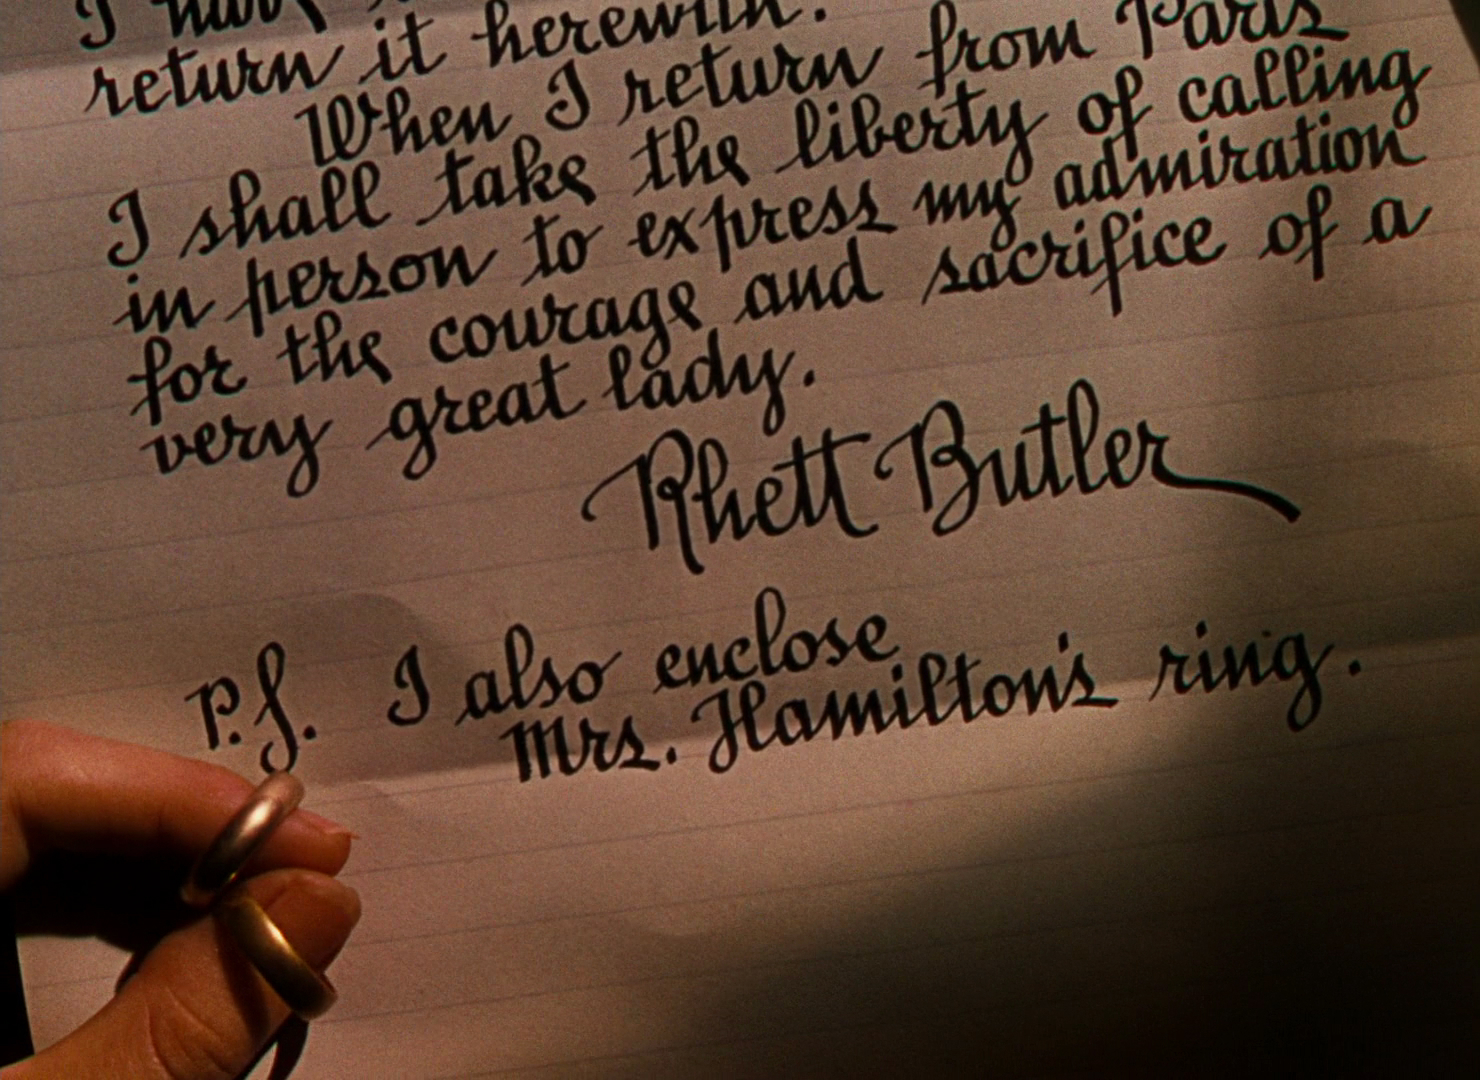 I
return it herewith.
When I return from Paris
I shall take the liberty of calling
in person to express my admiration
for the courage and sacrifice of a
very great lady.
Rhett Butler
P.S. I also enclose
Mrs. Hamilton's ring.